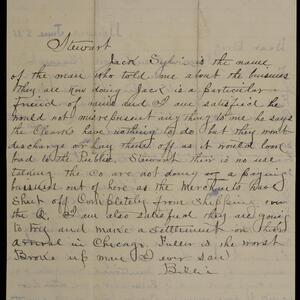 Stewart
Jack Sylvi is the name
of the man who told me about the business
they are you doing Jack is a particular
friend of mine and I am satisfied he
would not misrepresent any thing to me he says
the Clearks have nothing to do but they wont
discharge or Lay them off as it would look
bad to the Public. Stewart their is no use
talking the Co are not doing a paying
bussiness out of here as the Merchants have
Shut off Completely from Shipping over
the Q. I am also satisfied they are going
to try and make a settlement on their
arrival in Chicago. Fuller is the worst
Broke up man I ever saw
Billie